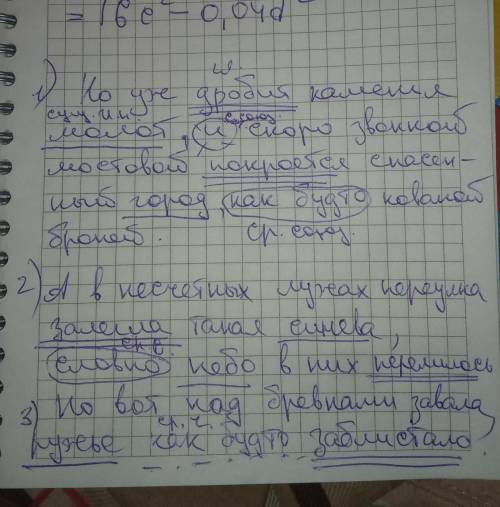 = 16c² - 0,04d²
гл.
1) Но уже дробит каменья
сущ. и.п. союз
молот, и скоро звонкой
мостовой покроется спасен-
ный город, как будто кованой
броней. ср. союз.
2) А в несчетных лужах переулка
залегла такая синева,
словно небо в них перелилось
3) Но вот над бревнами завала
ср. ч.
ружье как будто заблистало